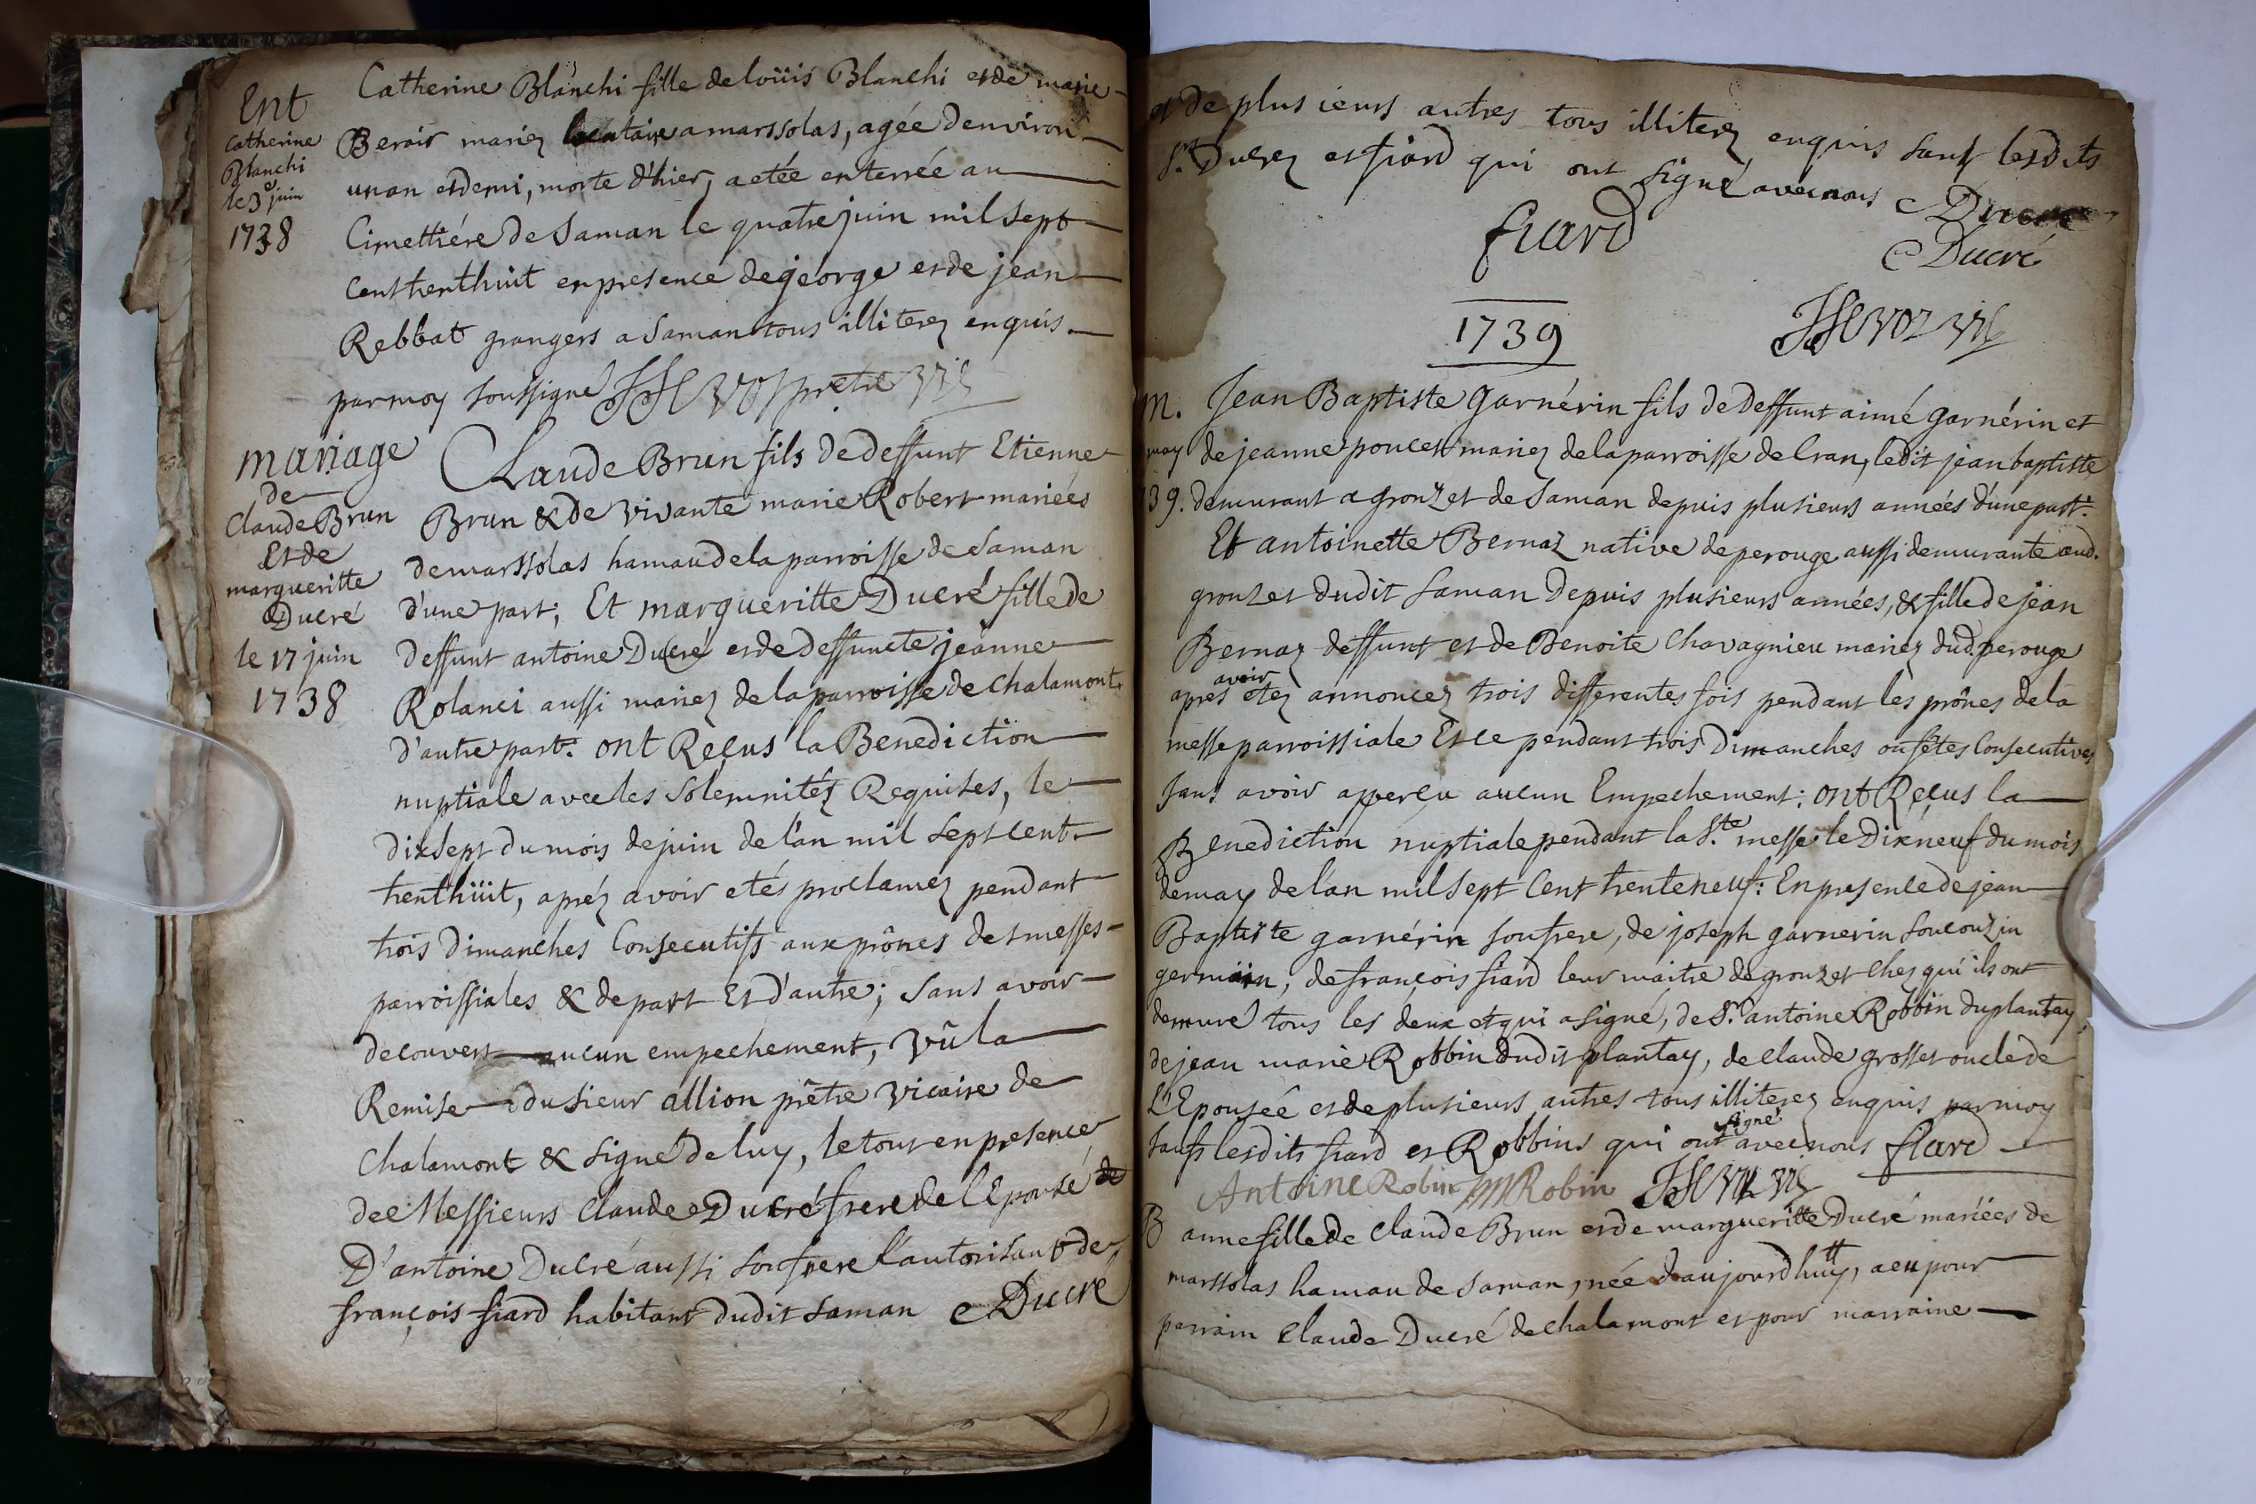 Ent
Catherine
Blanchi
le 3e juin
1738
Catherine Blanchi fille de loüis Blanchi et de marie
Berair mariez locataire a marssolas, agée d'environ
un an et demi, morte d'hier, a etée enterrée au
Cimettiére de Saman le quatre juin mil sept
cent trent huit en presence de george et de jean
Rebbat grangers a Saman tous illiterez enquis
par moy soussigné prêtre
mariage
de
Claude Brun
Et de
margueritte
Ducré
le 17 juin
1738
Claude Brun fils de deffunt Etienne
Brun & de vivante marie Robert mariées
de marssolas hamau de la parroisse de Saman
d'une part; Et margueritte Ducré fille de
deffunt antoine Ducré et de deffuncte jeanne
Rolanci aussi mariez de la parroisse de chalamont
d'autre part: ont Reçus la Benediction
nuptiale avec les solemnitéz Requises, le
dixsept du mois de juin de l'an mil sept cent
trenthüit, apréz avoir etés proclamez pendant
trois Dimanches Consecutifs aux prônes des messes
parroissiales & de part Et d'autre; sans avoir
decouvert aucun empechement, Vû la
Remise du sieur allion prêtre vicaire de
Chalamont & signé de luy, le tout en presence
de Messieurs Claude Ducré frere de l'Epousée de
D'antoine Ducré aussi son frere l'autorisant de
françois fiard habitant dudit Saman Ducré
et de plusieurs autres tous illiterez enquis sauf lesdits
Srs Ducrez et fiard qui ont signé avec nous
fiard
Ducré
1739
m.
may
39.
Jean Baptiste garnérin fils de deffunt aimé garnérin et
de jeanne poncet mariez de la parroisse de Cran, ledit jean baptiste
demurant a gronzet de Saman depuis plusieurs années d'une part:
Et antoinette Bernaz native de perouge aussi demurante aud.
gronzet dudit Saman Depuis plusieurs années, & fille de jean
Bernaz deffunt et de Benoite Chavagnieu mariez dud perouge
apres avoir etez annoncez trois differentes fois pendant les prônes de la
messe parroissiale Et ce pendant trois Dimanches ou fêtes Consecutives
sans avoir apperçu aucun Empechement: ont Reçus la
Benediction nuptiale pendant la Ste messe le Dixneuf du mois
de may de l'an mil sept cent trente neuf: En presence de jean
Baptiste garnérin son frere, de joseph garnerin son couzin
germain, de françois fiard leur maitre de gronzet chez qui ils ont
demuré tous les deux et qui a signé, de Sr antoine Robbin du plantay,
de jean marie Robbin dudit plantay, de claude grosset oncle de
L'Epousée et de plusieurs autres tous illiterez enquis par moy
saufs lesdits fiard et Robbins qui ont signé avec nous fiard
Antoine Robin JM Robin
B anne fille de Claude Brun et de margueritte Ducré mariées de
marssolas hamau de Saman, née d'aujourdhuy, a eu pour
parrain Claude Ducré de chalamont et pour marraine